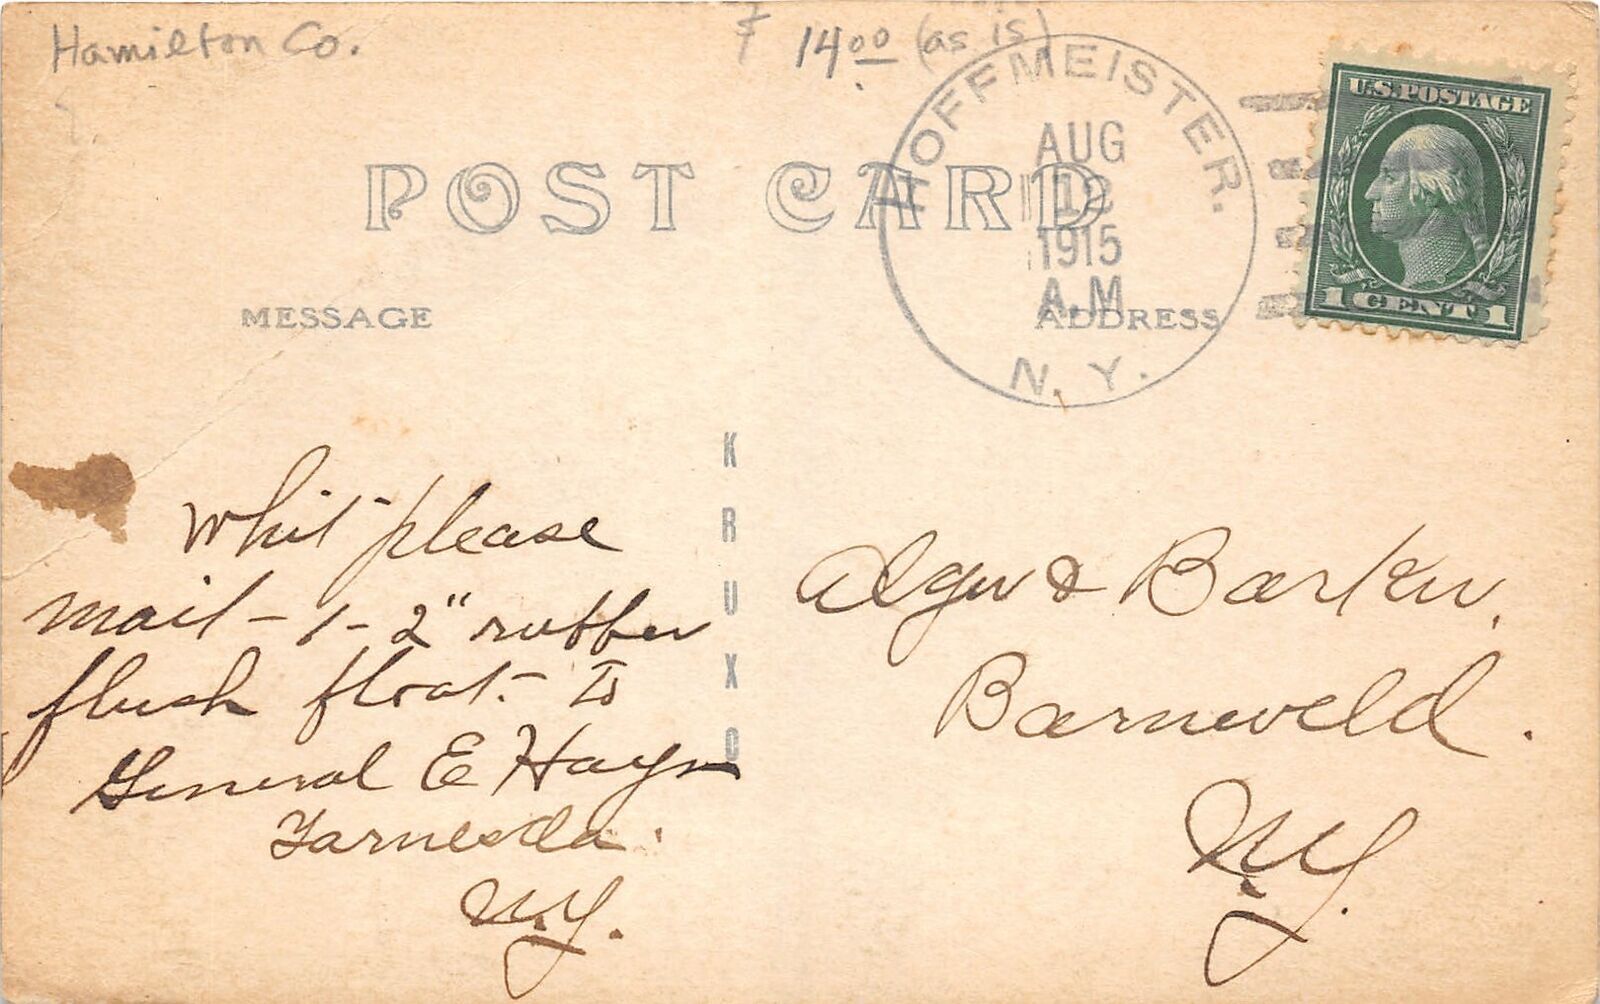 Hamilton Co.
14.00 (as is)
HOFFMEISTER.
AUG
12
1915
A.M.
N. Y.
U.S. POSTAGE
1 CENT 1
POST CARD
MESSAGE
ADDRESS
KRUXO
Whit - please
mail - 1 - 2" rubber
flush float. - To
General E Hayes
N.Y.
Alger & Barker.
Barneveld.
N.Y.